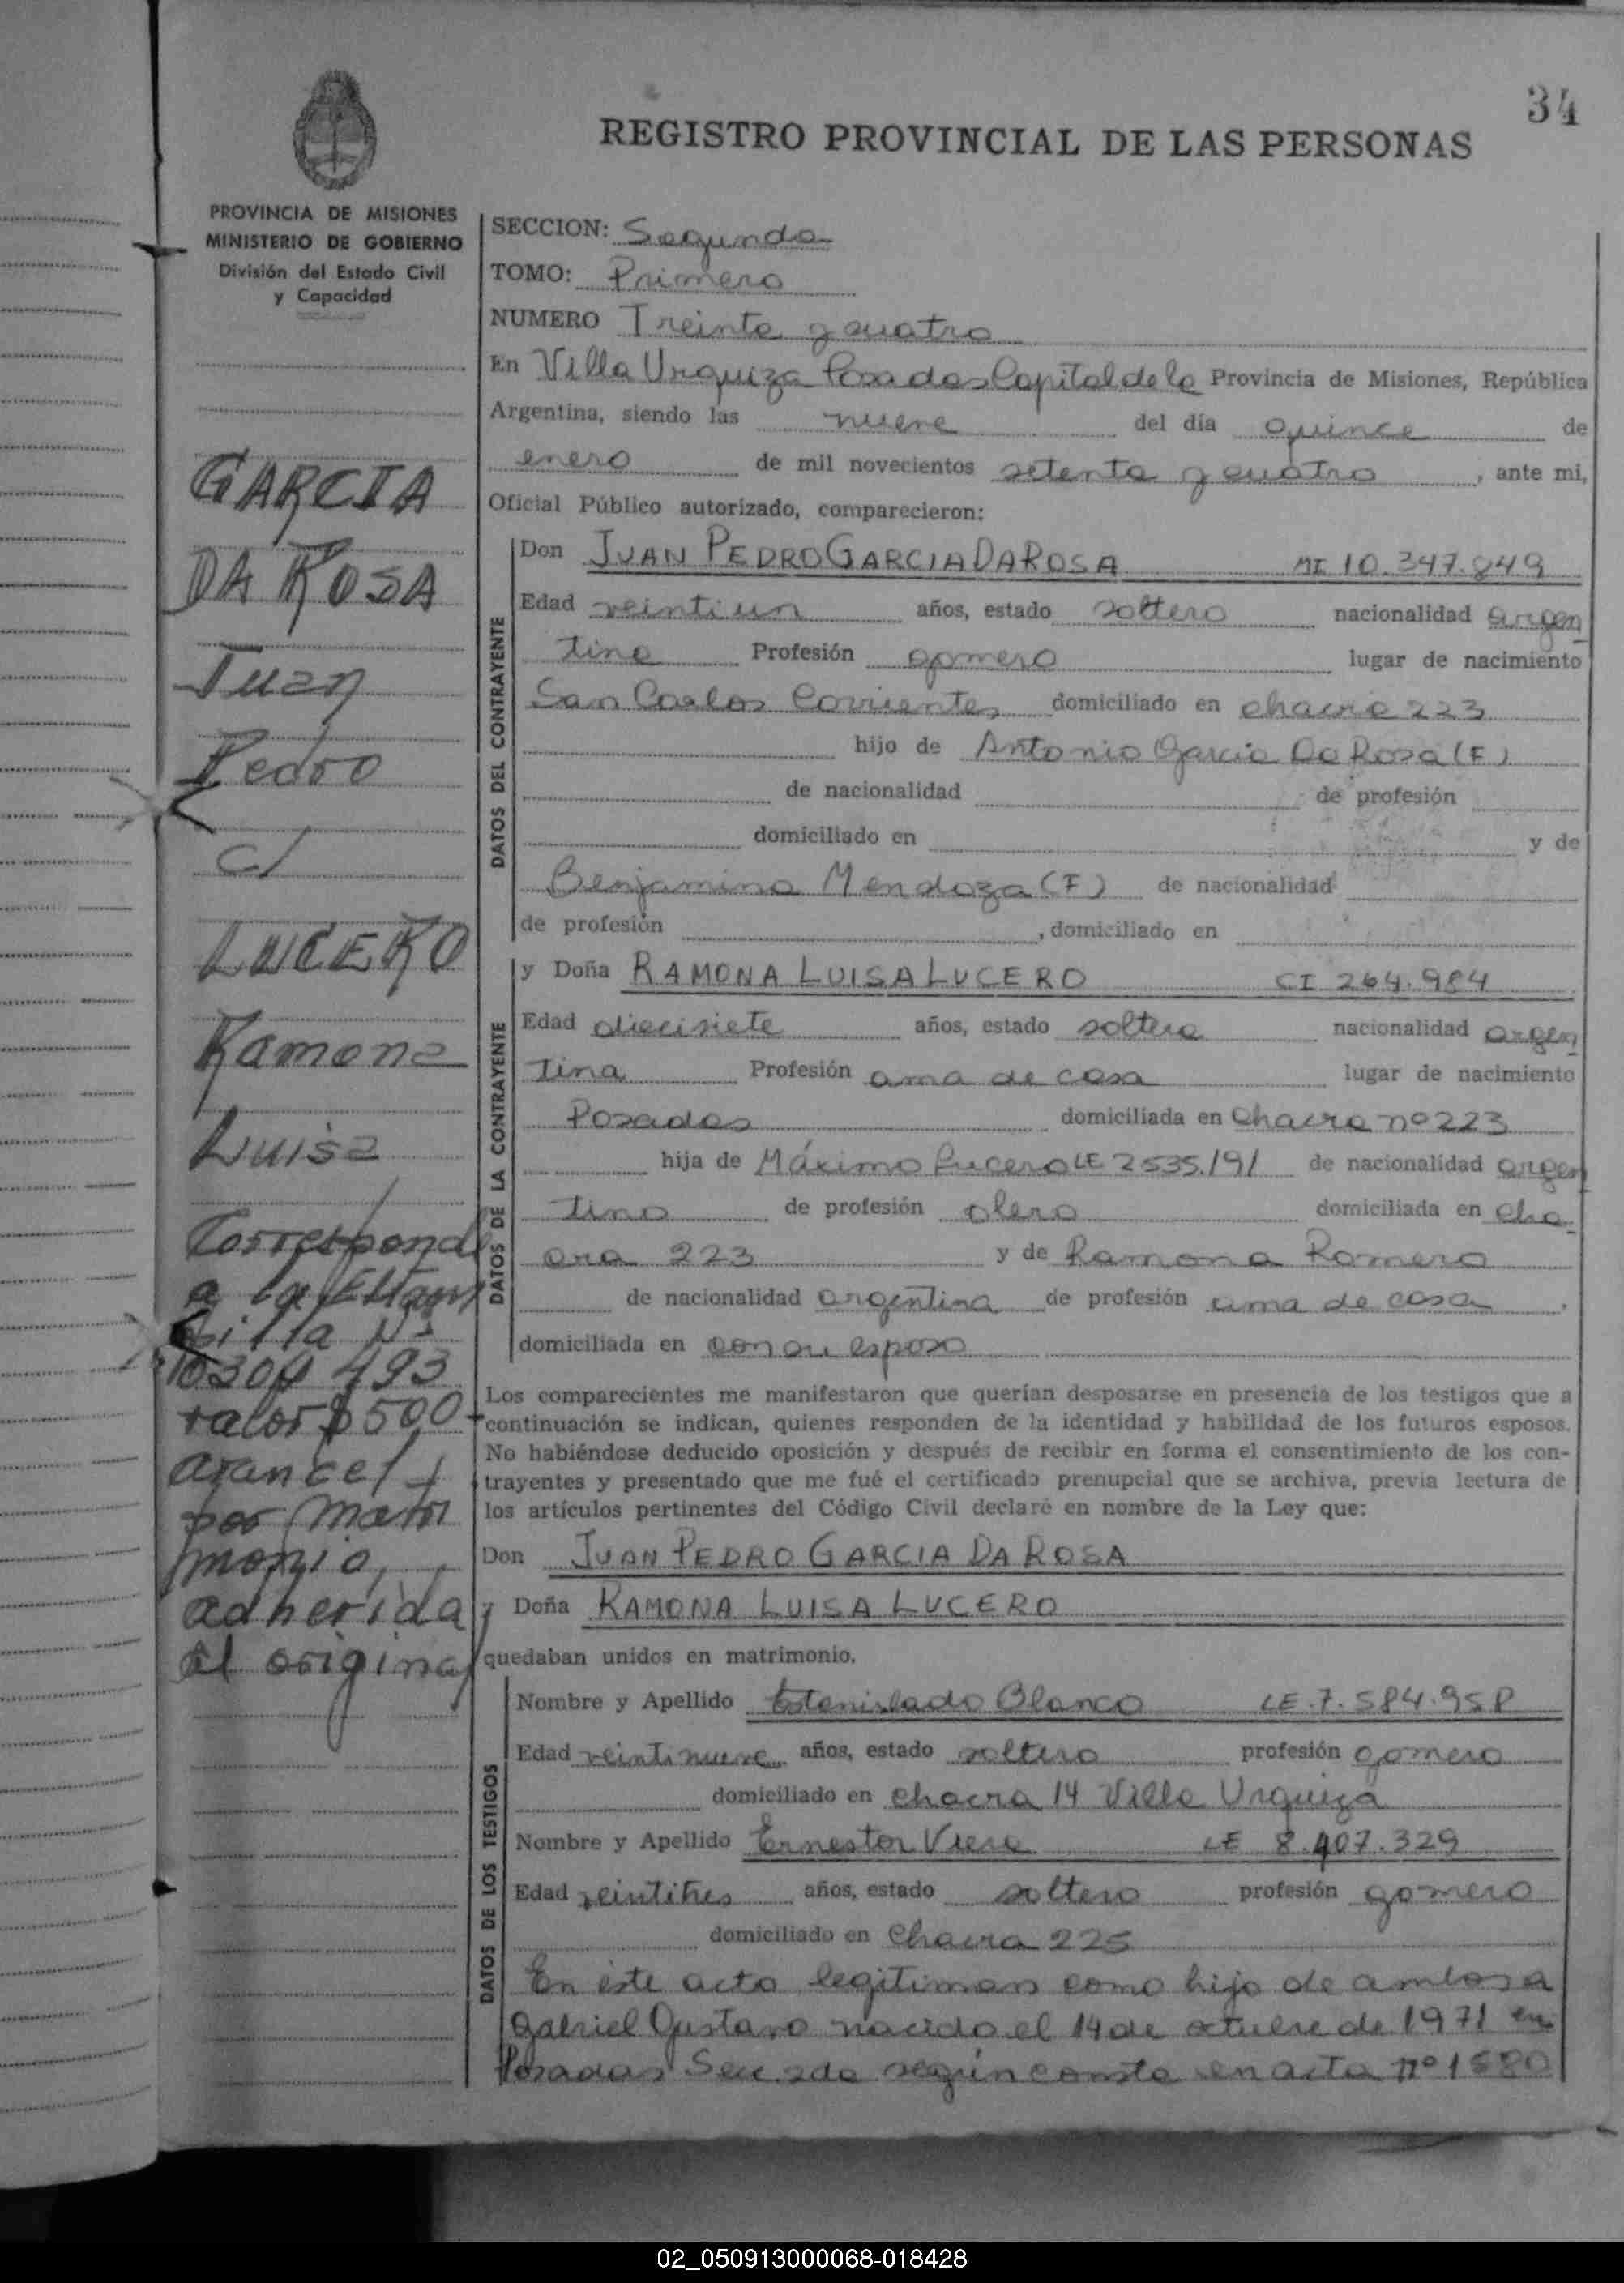 34
REGISTRO PROVINCIAL DE LAS PERSONAS
PROVINCIA DE MISIONES
MINISTERIO DE GOBIERNO
División del Estado Civil
y Capacidad
GARCIA
DA ROSA
Juan
Pedro
c/
LUCERO
Ramona
Luisa
Corresponde
a la Estam
pilla Nº
10304 493
valor $ 500
arancel
por matri
monio,
adherida
al original
SECCION: Segunda
TOMO: Primero
NUMERO Treinta y cuatro
En Villa Urquiza Posadas Capital de la Provincia de Misiones, República
Argentina, siendo las nueve del día quince de
enero de mil novecientos setenta y cuatro, ante mi,
Oficial Público autorizado, comparecieron:
DATOS DEL CONTRAYENTE
Don JUAN PEDRO GARCIA DA ROSA MI 10.347.849
Edad veintiun años, estado soltero nacionalidad argen
tino Profesión gomero lugar de nacimiento
San Carlos Corrientes domiciliado en chacra 223
hijo de Antonio Garcia Da Rosa (F)
de nacionalidad de profesión
domiciliado en y de
Benjamina Mendoza (F) de nacionalidad
de profesión , domiciliado en
DATOS DE LA CONTRAYENTE
y Doña RAMONA LUISA LUCERO CI 264.984
Edad diecisiete años, estado soltera nacionalidad argen
tina Profesión ama de casa lugar de nacimiento
Posadas domiciliada en Chacra nº 223
hija de Máximo Lucero LE 2535.191 de nacionalidad argen
tino de profesión olero domiciliada en cha
cra 223 y de Ramona Romero
de nacionalidad argentina de profesión ama de casa,
domiciliada en con su esposo
Los comparecientes me manifestaron que querían desposarse en presencia de los testigos que a
continuación se indican, quienes responden de la identidad y habilidad de los futuros esposos.
No habiéndose deducido oposición y después de recibir en forma el consentimiento de los con-
trayentes y presentado que me fué el certificado prenupcial que se archiva, previa lectura de
los artículos pertinentes del Código Civil declaré en nombre de la Ley que:
Don JUAN PEDRO GARCIA DA ROSA
y Doña RAMONA LUISA LUCERO
quedaban unidos en matrimonio.
DATOS DE LOS TESTIGOS
Nombre y Apellido Estanislado Blanco LE.7.584.958
Edad veintinueve años, estado soltero profesión gomero
domiciliado en chacra 14 Villa Urquiza
Nombre y Apellido Ernestor Viera LE 8.407.329
Edad veintitres años, estado soltero profesión gomero
domiciliado en Chacra 225
En este acto legitiman como hijo de ambos a
Gabriel Gustavo nacido el 14 de octubre de 1971 en
Posadas Secc. 2da según consta en acta nº 1580
02_050913000068-018428